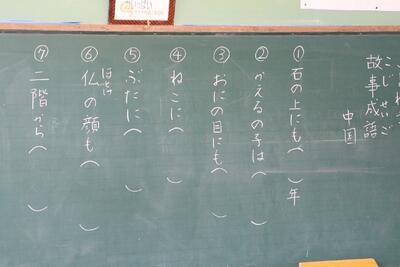 故事成語
こじせいご
中国
①石の上にも（　）年
②かえるの子は（　）
③おにの目にも（　）
④ねこに（　）
⑤ぶたに（　）
⑥仏の顔も（　）
ほとけ
⑦二階から（　）